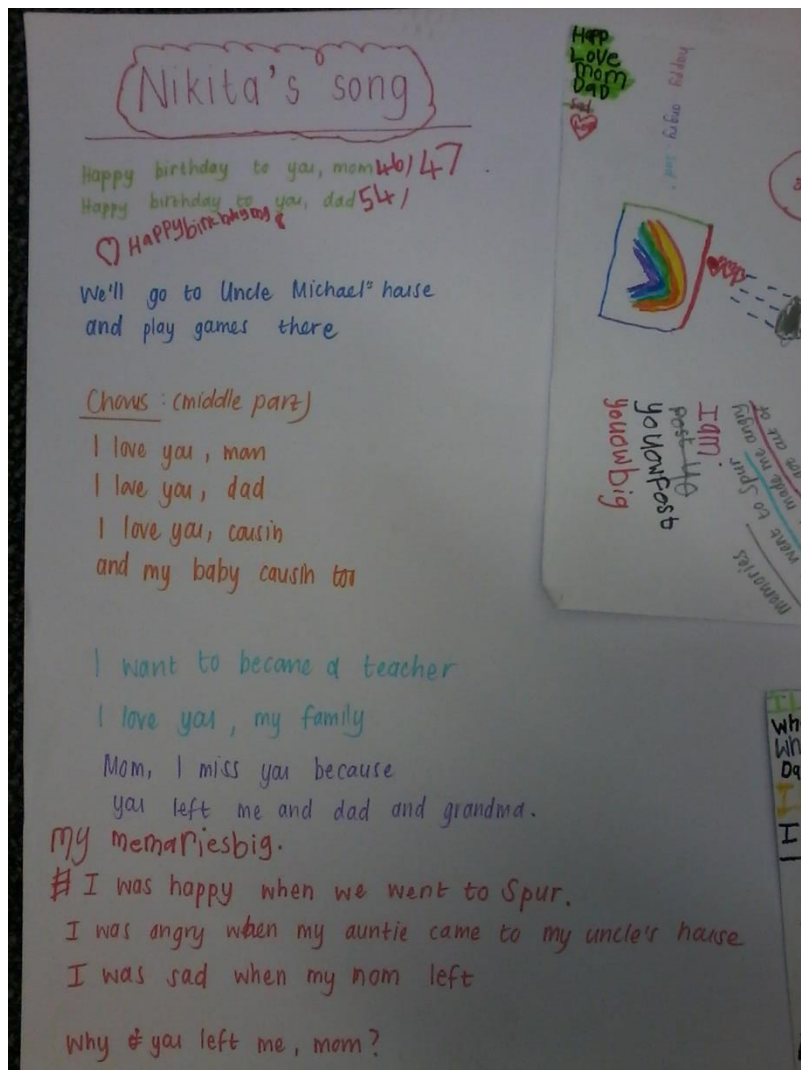 Nikita's song
Happy birthday to you, mom 46/47
Happy birthday to you, dad 54/
Happybirthdaysong
We'll go to Uncle Michael's house
and play games there
Chorus: (middle part)
I love you, mom
I love you, dad
I love you, cousin
and my baby cousin too
I want to become a teacher
I love you, my family
Mom, I miss you because
you left me and dad and grandma.
My memoriesbig.
# I was happy when we went to Spur.
I was angry when my auntie came to my uncle's house
I was sad when my mom left
Why you left me, mom?
Happ
Love
Mom
DaD
Happy angry sad
I am
past 40
yoyowfast
yoyowbig
made me angry
went to Spur
memories
Wh
Wh
Da
I
H